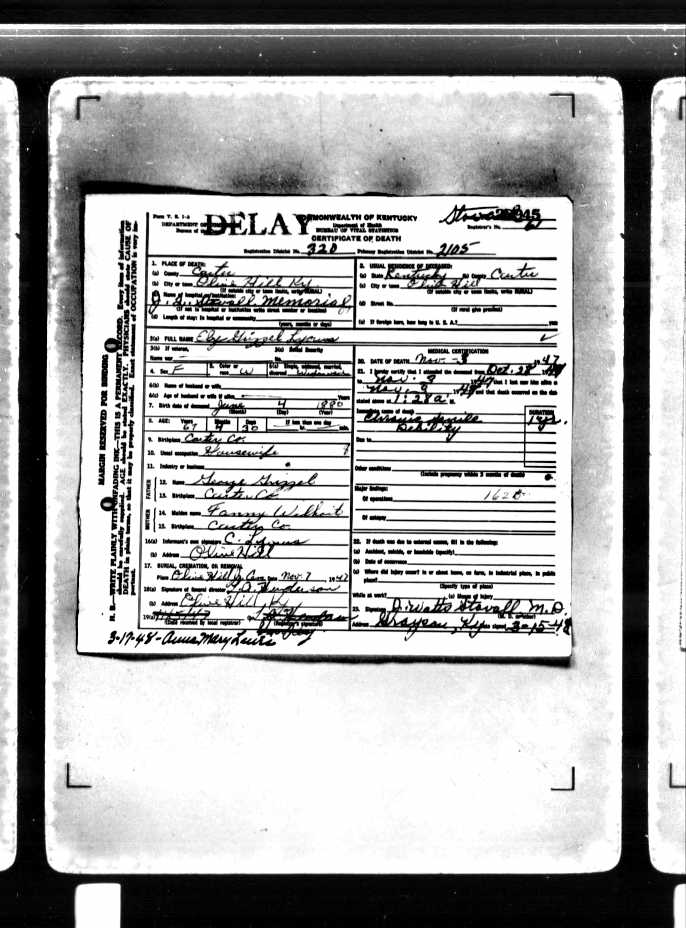 Form V. S. 1-A
DELAY
COMMONWEALTH OF KENTUCKY
Department of Health
BUREAU OF VITAL STATISTICS
CERTIFICATE OF DEATH
Registrar's No.
Registration District No. 320 Primary Registration District No. 2105
MARGIN RESERVED FOR BINDING
N. B.—WRITE PLAINLY WITH UNFADING INK—THIS IS A PERMANENT RECORD. Every item of information
should be carefully supplied. AGE should be stated EXACTLY. PHYSICIANS should state CAUSE OF
DEATH in plain terms, so that it may be properly classified. Exact statement of OCCUPATION is very important.
1. PLACE OF DEATH:
(a) County Carter
(b) City or town Olive Hill Ky
(If outside city or town limits, write RURAL)
J. Q. Stovall Memorial
(If not in hospital or institution write street number or location)
(d) Length of stay: In hospital or community
(years, months or days)
2. USUAL RESIDENCE OF DECEASED:
(a) State Kentucky (b) County Carter
(c) City or town Olive Hill
(If outside city or town limits, write RURAL)
(d) Street No.
(If rural give precinct)
(e) If foreign born, how long in U. S. A.? years
3(a) FULL NAME Grizzel Lyons
3(b) If veteran, 3(c) Social Security
Name war No.
4. Sex F 5. Color or race W 6(a) Single, widowed, married, divorced
6(b) Name of husband or wife
6(c) Age of husband or wife if alive Years
7. Birth date of deceased June 4 1880
(Month) (Day) (Year)
8. AGE: Years Months Days If less than one day
67 4 30 hr. min.
9. Birthplace Carter Co.
10. Usual occupation Housewife
11. Industry or business
FATHER
12. Name George Grizzel
13. Birthplace Carter Co
MOTHER
14. Maiden name Fanny Wilhoit
15. Birthplace Carter Co
16(a) Informant's own signature C. Lyons
(b) Address Olive Hill
17. BURIAL, CREMATION, OR REMOVAL
Place Olive Hill Cem Date Nov. 7 1947
18(a) Signature of funeral director Henderson
(b) Address Olive Hill Ky
19(a)
(Date received by local registrar) (Registrar's signature)
MEDICAL CERTIFICATION
20. DATE OF DEATH Nov. 3 1947
21. I hereby certify that I attended the deceased from Oct. 28
to Nov. 3 that I last saw him alive on
Nov. and that death occurred on the date
stated above at 1:28 a M.
Immediate cause of death DURATION
Debility
Due to
Other conditions
(Include pregnancy within 3 months of death)
Major findings:
Of operations
Of autopsy
22. If death was due to external causes, fill in the following:
(a) Accident, suicide, or homicide (specify)
(b) Date of occurrence
(c) Where did injury occur? in or about home, on farm, in industrial place, in public
place?
(Specify type of place)
While at work? (e) Means of injury
23. Signature J. Watts Stovall M.D.
Address Grayson, Ky Date signed 3-15-48
3-17-48 - Anna Mary Lewis